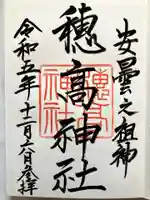 安曇之祖神
穂高神社
穂高
神社
令和五年十一月六日参拝